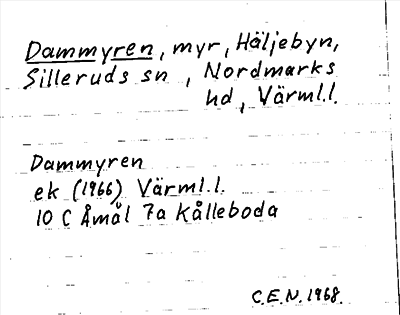 Dammyren, myr, Häljebyn,
Silleruds sn, Nordmarks
hd, Värml.l.
Dammyren
ek (1966) Värml.l.
10 C Åmål 7a Kålleboda
C.E.N. 1968.